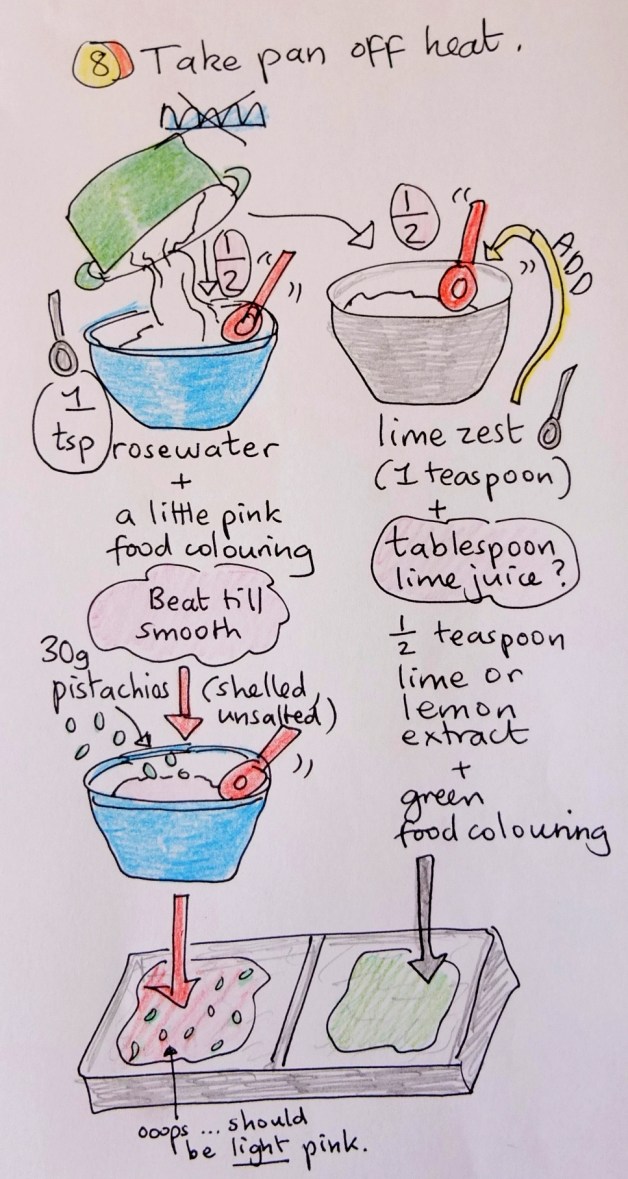 8 Take pan off heat.
1/2
1/2
ADD
1
tsp
rosewater
+
a little pink
food colouring
Beat till
smooth
30g
pistachios
(shelled,
unsalted)
lime zest
(1 teaspoon)
+
tablespoon
lime juice?
1/2 teaspoon
lime or
lemon
extract
+
green
food colouring
ooops ... should
be light pink.